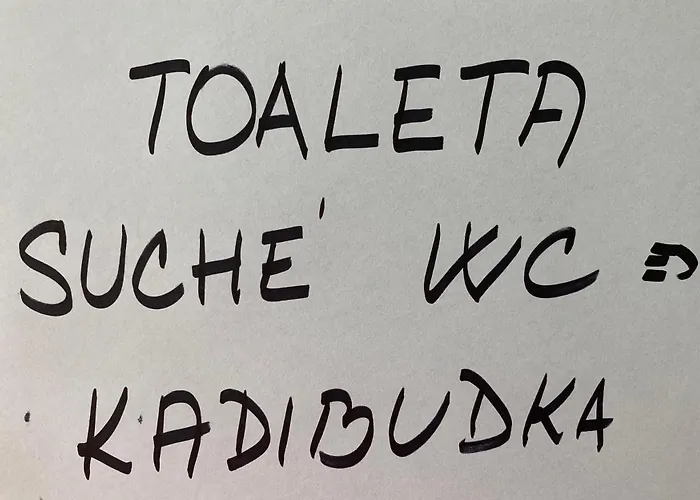 TOALETA
SUCHÉ WC =)
KADIBUDKA